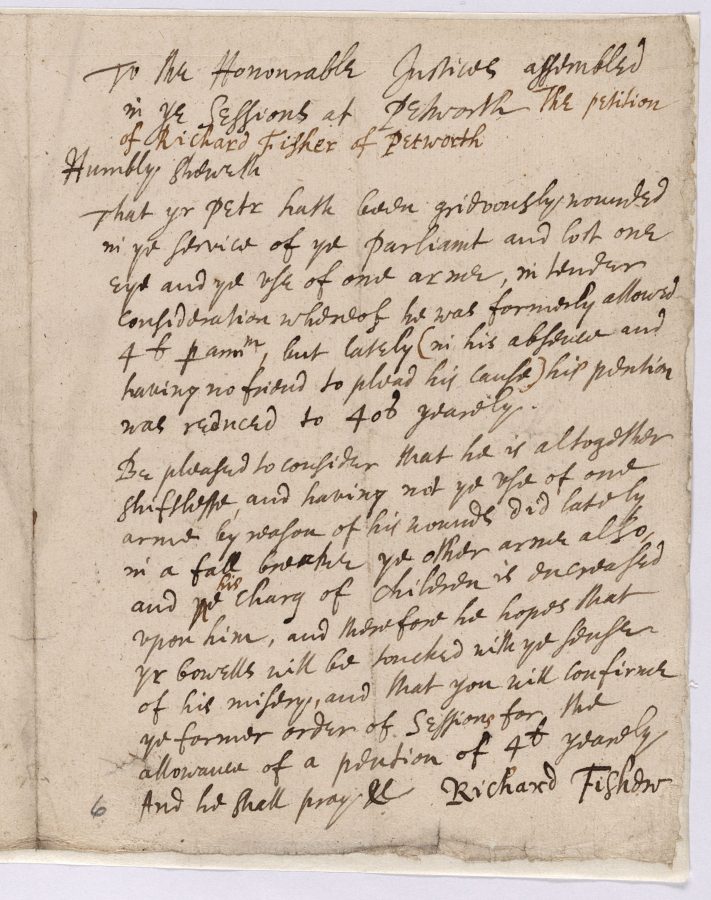 To the Honourable Justices assembled
in ye Sessions at Petworth The petition
of Richard Fisher of Petworth
Humbly sheweth
That yr Petr hath been grievously wounded
in ye service of ye Parliamt and lost one
Eye and ye use of one arme, in tender
Consideration whereof he was formerly allowed
4 £ p annm, but lately (in his absence and
having no friend to plead his cause) his pention
was reduced to 40s yearely.
Be pleased to consider that he is altogether
shiftlesse, and having not ye use of one
arme by reason of his wounds did lately
in a fall breake ye other arme also,
and his charg of Children is encreased
upon him, and therefore he hopes that
yr bowells will be touched with ye sense
of his misery, and that you will confirme
ye former order of Sessions for the
allowance of a pention of 4£ yearely
And he shall pray &c Richard Fisher
6